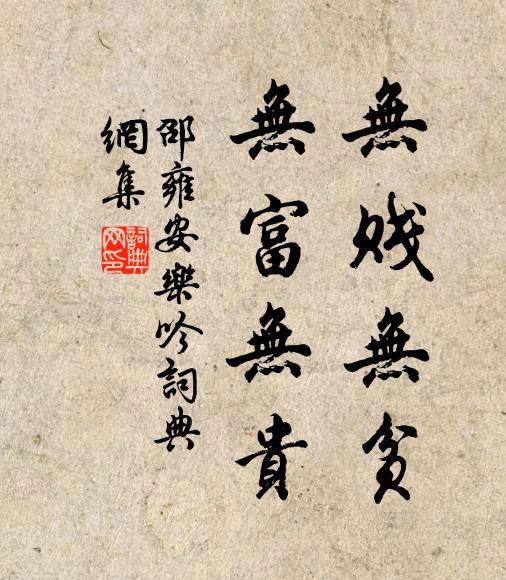 無賤無貧
無富無貴
邵雍安樂吟詞典
網集
詞典
网印